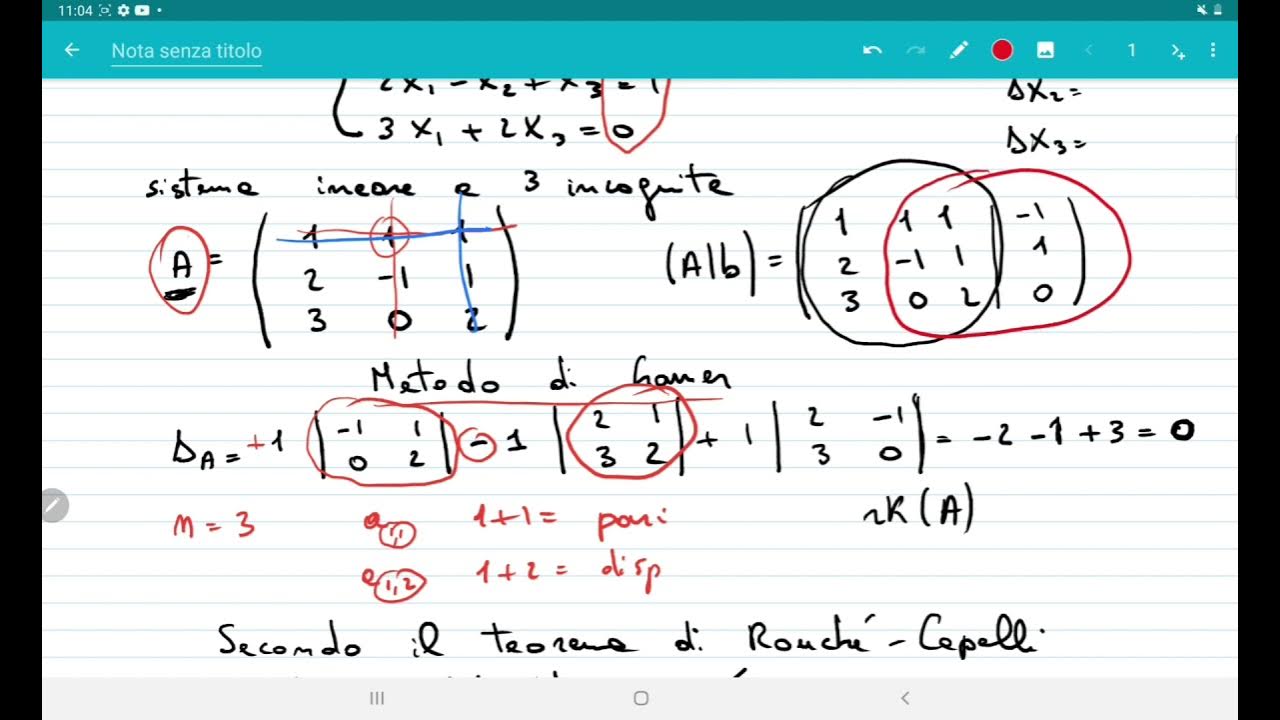 11:04
Nota senza titolo
1
2x₁ - x₂ + x₃ = 1
3x₁ + 2x₃ = 0
Δx₂ =
Δx₃ =
sistema ineare a 3 incognite
A = ( 1 1 1
2 -1 1
3 0 2 )
(A|b) = ( 1 1 1 | -1
2 -1 1 | 1
3 0 2 | 0 )
Metodo di
Δ_A = +1 | -1 1 | - 1 | 2 1 | + 1 | 2 -1 | = -2 -1 +3 = 0
| 0 2 | | 3 2 | | 3 0 |
n = 3 a₁,₁ 1+1 = pari
rK(A)
a₁,₂ 1+2 = disp
Secondo il teorema di Rouché-Capelli